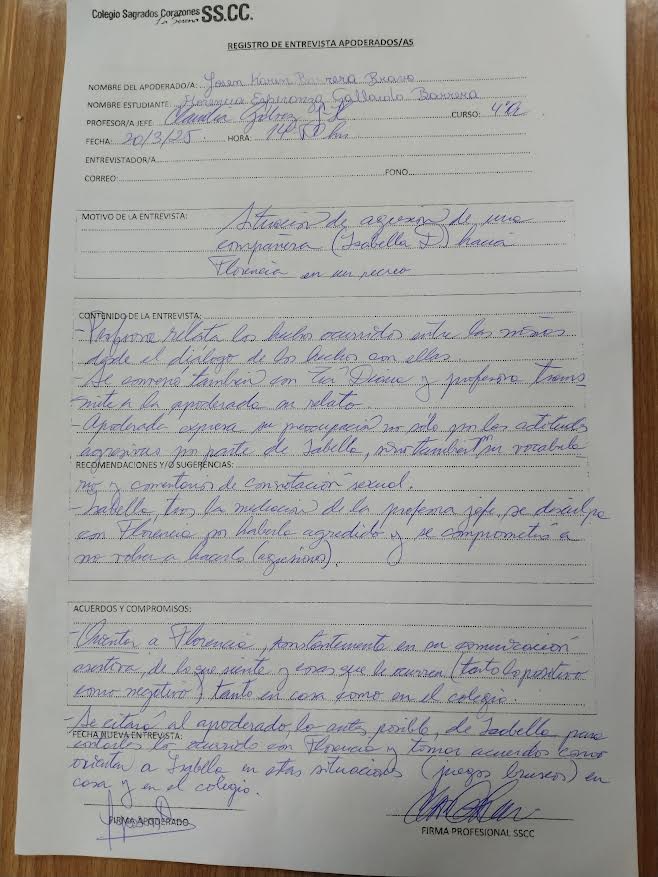 Colegio Sagrados Corazones SS.CC.
La Serena
REGISTRO DE ENTREVISTA APODERADOS/AS
NOMBRE DEL APODERADO/A: Karen Barrera Bravo
NOMBRE ESTUDIANTE: Florencia Esperanza Gallardo Barrera
PROFESOR/A JEFE: Claudia CURSO: 4°A
FECHA: 20/3/25 HORA: hrs
ENTREVISTADOR/A
CORREO: FONO
MOTIVO DE LA ENTREVISTA: Situación de agresión de una
compañera (Isabella D) hacia
Florencia en un recreo
CONTENIDO DE LA ENTREVISTA:
- Profesora relata los hechos ocurridos entre las niñas
desde el diálogo de los hechos con ellas.
- Se conversó también con Tía Diana y profesora trans
mite a la apoderada su relato
- Apoderada expresa su preocupación no sólo por las actitudes
agresivas por parte de Isabella, sino también su vocabula
RECOMENDACIONES Y/O SUGERENCIAS:
rio y comentarios de connotación sexual.
- Isabella, tras la mediación de la profesora jefe, se disculpa
con Florencia por haberla agredido y se comprometió a
no volver a hacerlo (agresiones).
ACUERDOS Y COMPROMISOS:
- Orientar a Florencia, constantemente en su comunicación
asertiva, de lo que siente y cosas que le ocurren (tanto lo positivo
como negativo) tanto en casa como en el colegio.
- Se citará al apoderado, lo antes posible, de Isabella para
FECHA NUEVA ENTREVISTA:
contarles lo ocurrido con Florencia y tomar acuerdos como
orientar a Isabella en estas situaciones (juegos bruscos) en
casa y en el colegio.
FIRMA APODERADO
FIRMA PROFESIONAL SSCC